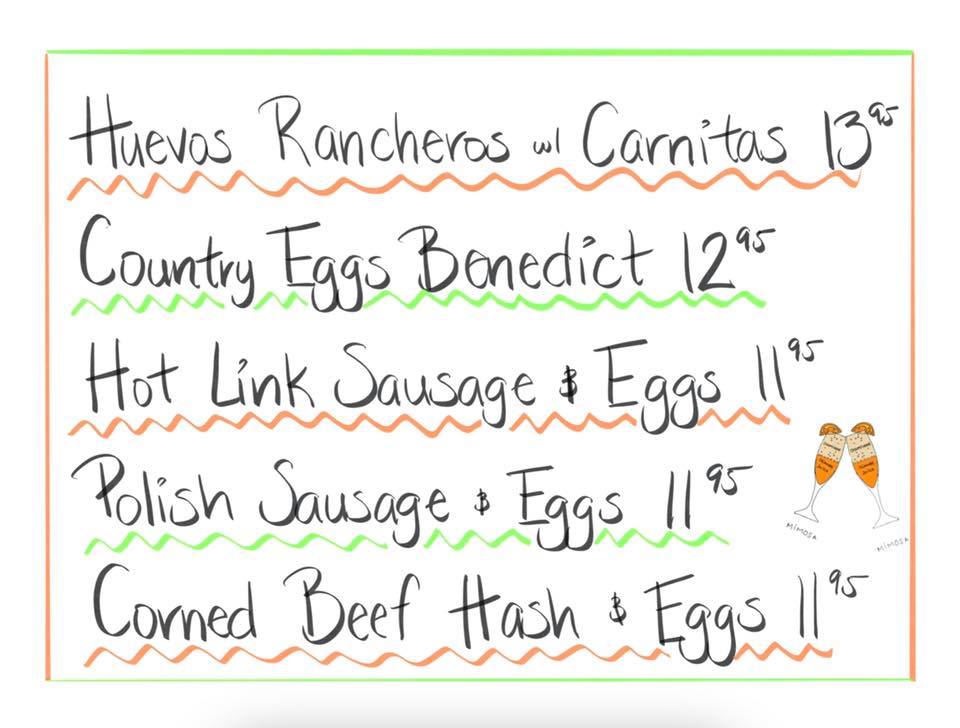 Huevos Rancheros w/ Carnitas 13⁹⁵
Country Eggs Benedict 12⁹⁵
Hot Link Sausage & Eggs 11⁹⁵
Polish Sausage & Eggs 11⁹⁵
MIMOSA
MIMOSA
Corned Beef Hash & Eggs 11⁹⁵